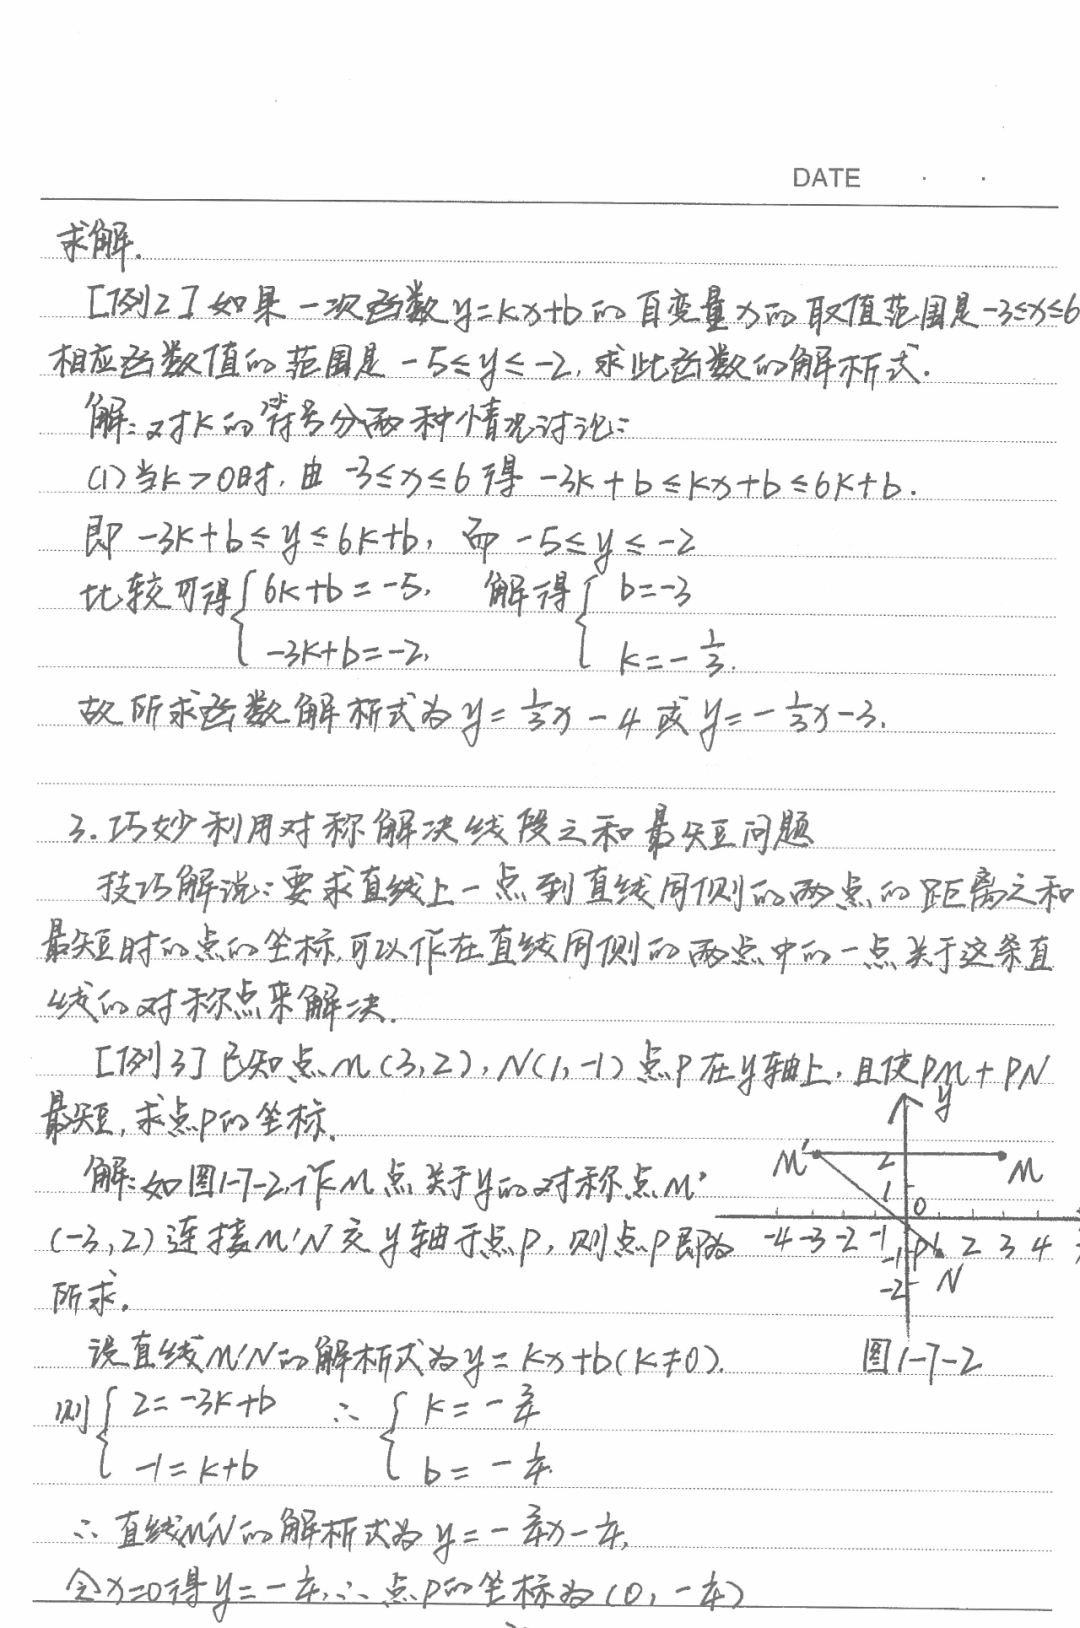 DATE . .
求解.
[例2] 如果一次函数y=kx+b的自变量x的取值范围是-3≤x≤6
相应函数值的范围是 -5≤y≤-2,求此函数的解析式.
解:对K的符号分两种情况讨论:
(1)当k>0时,由 -3≤x≤6 得 -3k+b≤kx+b≤6k+b.
即 -3k+b≤y≤6k+b, 而 -5≤y≤-2
比较可得{6k+b=-5, 解得{b=-3
-3k+b=-2, k=-1/3.
故所求函数解析式为y=1/3x-4或y=-1/3x-3.
3.巧妙利用对称解决线段之和最短问题
技巧解说:要求直线上一点到直线同侧的两点的距离之和
最短时的点的坐标,可以作在直线同侧的两点中的一点关于这条直
线的对称点来解决.
[例3] 已知点M(3,2),N(1,-1)点P在y轴上,且使PM+PN
最短,求点P的坐标.
解:如图1-7-2,作M点关于y的对称点M'
(-3,2)连接M'N交y轴于点P,则点P即为
所求.
y
M' 2 M
1 0
-4 -3 -2 -1 P 1 2 3 4
-1 N
-2
图1-7-2
设直线M'N的解析式为y=kx+b(k≠0).
则{2=-3k+b ∴{k=-3/4
-1=k+b b=-1/4.
∴直线M'N的解析式为y=-3/4x-1/4,
令x=0得y=-1/4,∴点P的坐标为(0,-1/4)